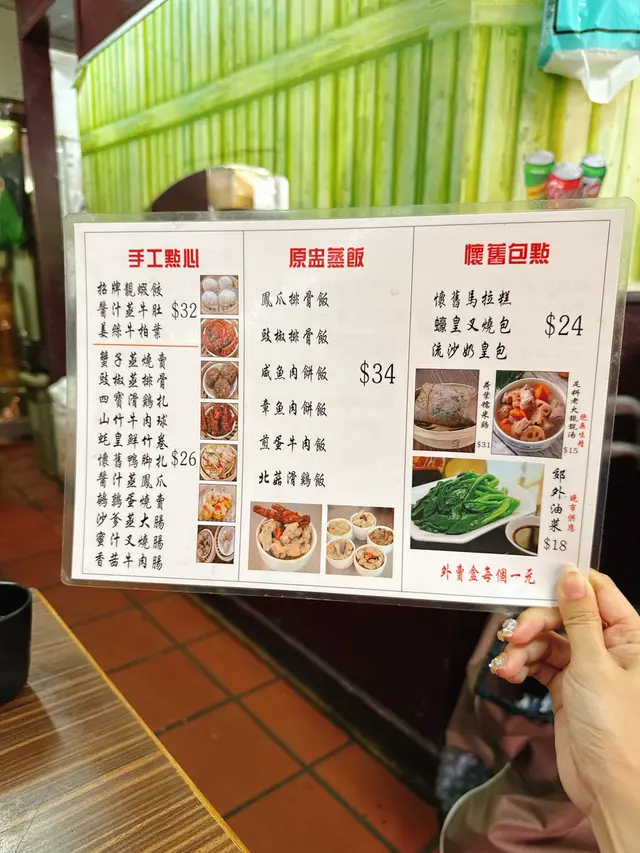 手工點心
招牌靚蝦餃
醬汁蒸牛肚
姜絲牛柏葉
$32
蟹子蒸燒賣
豉椒蒸排骨
四寶滑鷄扎
山竹牛肉球
蚝皇鮮竹卷
懷舊鴨脚扎
醬汁蒸鳳爪
鵪鶉蛋燒賣
沙爹蒸大腸
蜜汁叉燒腸
香茜牛肉腸
$26
原盅蒸飯
鳳爪排骨飯
豉椒排骨飯
咸魚肉餅飯
章魚肉餅飯
煎蛋牛肉飯
北菇滑鷄飯
$34
懷舊包點
懷舊馬拉糕
蠔皇叉燒包
流沙奶皇包
$24
荷葉糯米鷄
$31
足料老火靚靚湯
絶無味精
$15
郊外油菜
晚市供應
$18
外賣盒每個一元